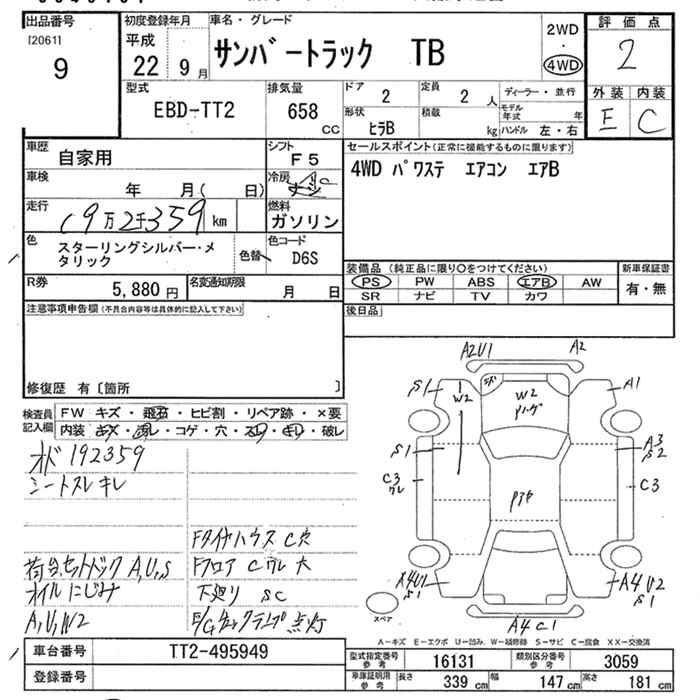 出品番号
[2061]
9
初度登録年月
平成
22 9 月
車名・グレード
サンバートラック TB
2WD
・
4WD
評価点
2
外装 内装
E C
型式
EBD-TT2
排気量
658
CC
ドア 2
形状 ヒラB
定員 2 人
積載 kg
ディーラー・並行
モデル年式 年
ハンドル 左・右
車歴 自家用
シフト F5
車検 年 月( 日)
冷房 AC
走行 19万2千359 km
燃料 ガソリン
色 スターリングシルバー・メタリック
色替
色コード D6S
R券 5,880 円
名変通知期限 月 日
セールスポイント(正常に機能するものに限ります)
4WD パワステ エアコン エアB
装備品 (純正品に限り○をつけてください)
PS PW ABS エアB AW
SR ナビ TV カワ
新車保証書
有・無
後日品
注意事項申告欄(不具合内容等は具体的に記入して下さい)
修復歴 有〔箇所 〕
検査員記入欄
FW キズ・飛石・ヒビ割・リペア跡・×要
内装 キズ・汚レ・コゲ・穴・スレ・キレ・破レ
オド 192359
シートスレ キレ
FタイヤハウスC穴
荷台セットバックA,U,S
FフロアCクレ大
オイルにじみ
下廻り SC
A,U,W2
E/Gチェックランプ点灯
A2U1
A2
S1
W2
W2
A1
S1
A3
S2
C3
クレ
C3
A4U1
S1
A4U2
S1
A4C1
スペア
A−キズ E−エクボ U−凹み W−補修跡 S−サビ C−腐食 XX−交換済
車台番号 TT2-495949
登録番号
型式指定番号 参考 16131
類別区分番号 参考 3059
車庫証明用 参考 長さ 339 cm 幅 147 cm 高さ 181 cm